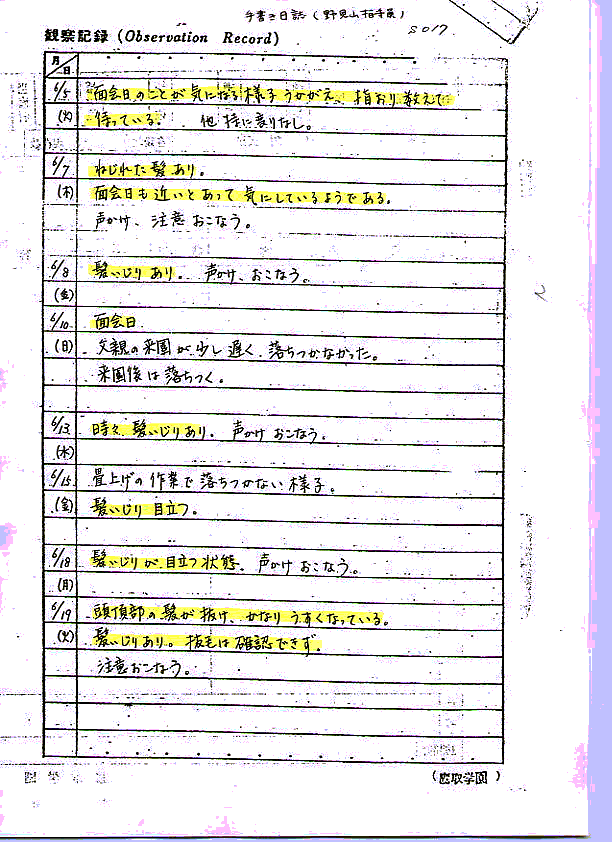 手書き日誌（野見山指導員）
S017
観察記録 (Observation Record)
月
日
6/5 面会日のことが気になる様子うかがえ、指おり数えて
(火) 待っている。 他特に変りなし。
6/7 ねじれた髪あり。
(木) 面会日も近いとあって気にしているようである。
声かけ、注意おこなう。
6/8 髪いじりあり。 声かけ、おこなう。
(金)
6/10 面会日
(日) 父親の来園が少し遅く、落ちつかなかった。
来園後は落ちつく。
6/13 時々、髪いじりあり。 声かけおこなう。
(水)
6/15 畳上げの作業で落ちつかない様子。
(金) 髪いじり目立つ。
6/18 髪いじりが目立つ状態。声かけおこなう。
(月)
6/19 頭頂部の髪が抜け、かなりうすくなっている。
(火) 髪いじりあり。抜毛は確認できず。
注意おこなう。
2
(鹿取学園)